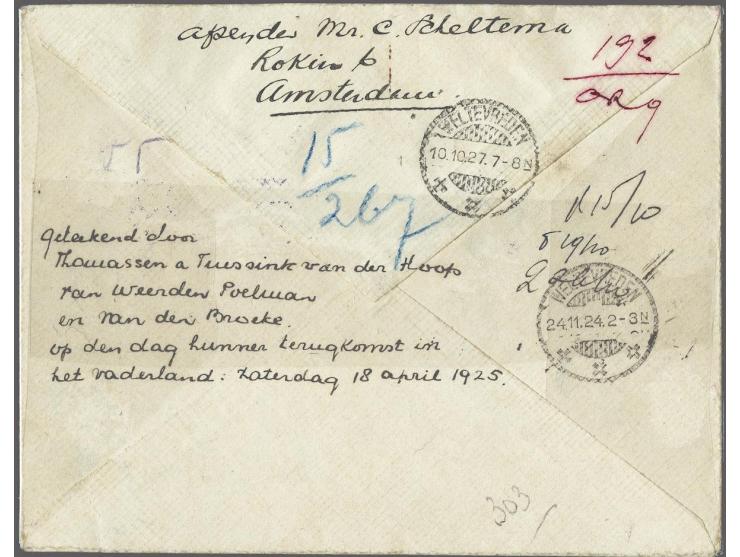 afzender Mr. C. Scheltema
Rokin 6
Amsterdam.
192
ORG
WELTEVREDEN
10.10.27.7-8N
15
267
R15/10
819/10
2
WELTEVREDEN
24.11.24.2-3N
geteekend door
Thomassen a Tuessink van der Hoop
van Weerden Poelman
en van den Broeke.
op den dag hunner terugkomst in
het vaderland: Zaterdag 18 april 1925.
303